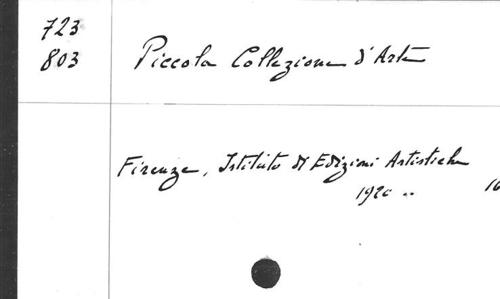 723
803
Piccola Collezione d'Arte
Firenze, Istituto di Edizioni Artistiche
1920 ..